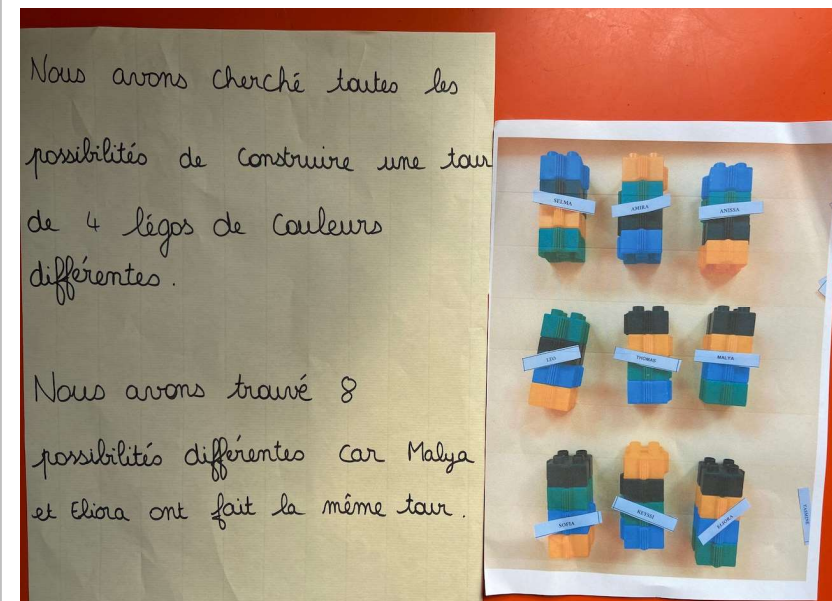 Nous avons cherché toutes les
possibilités de construire une tour
de 4 légos de couleurs
différentes.
Nous avons trouvé 8
possibilités différentes car Malya
et Eliora ont fait la même tour.
SELMA
AMIRA
ANISSA
LÉO
THOMAS
MALYA
SOFIA
KEYSSI
ELIORA